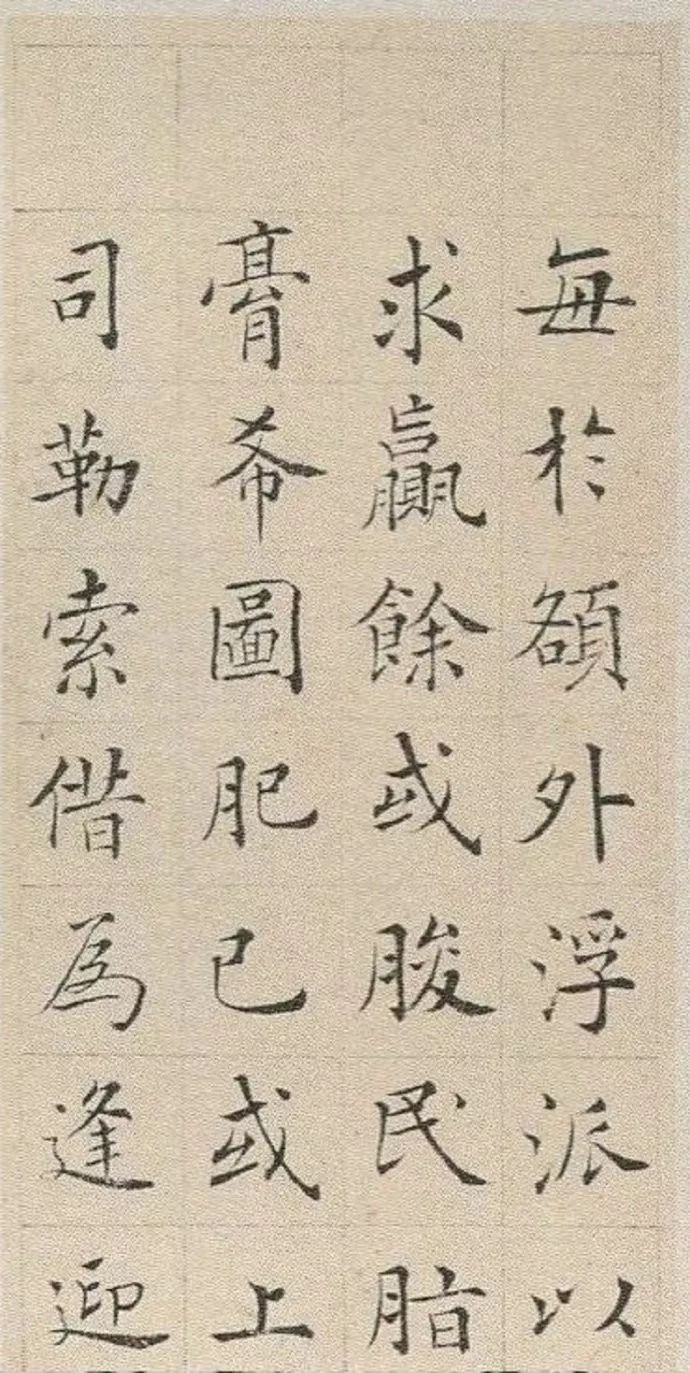 每於額外浮派以
求贏餘或朘民脂
膏希圖肥己或上
司勒索借為逢迎